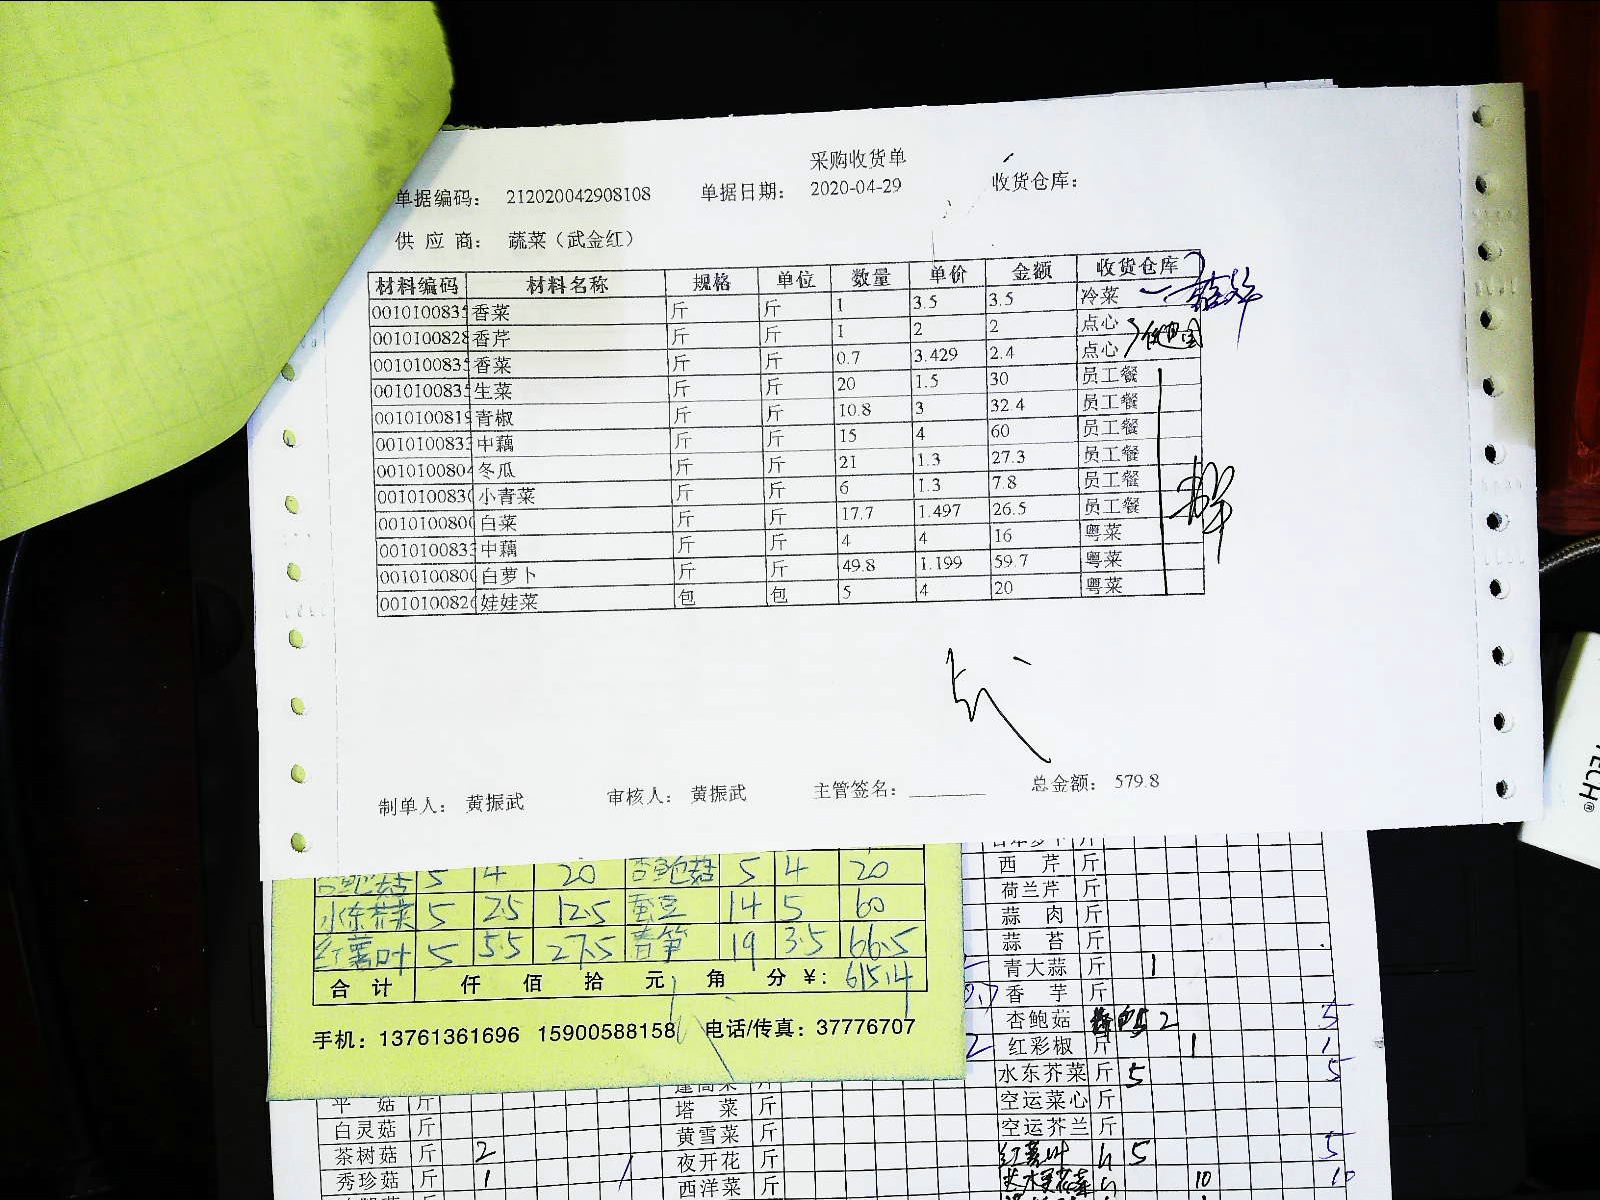 采购收货单
单据编码： 212020042908108 单据日期： 2020-04-29 收货仓库：
供 应 商： 蔬菜（武金红）
材料编码 材料名称 规格 单位 数量 单价 金额 收货仓库
001010083 香菜 斤 斤 1 3.5 3.5 冷菜
0010100828 香芹 斤 斤 1 2 2 点心
001010083 香菜 斤 斤 0.7 3.429 2.4 点心
001010083 生菜 斤 斤 20 1.5 30 员工餐
0010100819 青椒 斤 斤 10.8 3 32.4 员工餐
001010083 中藕 斤 斤 15 4 60 员工餐
0010100804 冬瓜 斤 斤 21 1.3 27.3 员工餐
001010083 小青菜 斤 斤 6 1.3 7.8 员工餐
001010080 白菜 斤 斤 17.7 1.497 26.5 员工餐
001010083 中藕 斤 斤 4 4 16 粤菜
001010080 白萝卜 斤 斤 49.8 1.199 59.7 粤菜
001010082 娃娃菜 包 包 5 4 20 粤菜
制单人： 黄振武 审核人： 黄振武 主管签名： 总金额： 579.8
杏鲍菇 5 4 20 杏鲍菇 5 4 20
水东芥菜 5 2.5 12.5 蚕豆 14 5 60
红薯叶 5 5.5 27.5 青笋 19 3.5 66.5
合 计 仟 佰 拾 元 角 分 ¥: 615.4
手机：13761361696 15900588158 电话/传真：37776707
西 芹 斤
荷兰芹 斤
蒜 肉 斤
蒜 苔 斤
青大蒜 斤 1
香 芋 斤
杏鲍菇 2 5
红彩椒 斤 1 1
水东芥菜 斤 5 5
空运菜心 斤
空运芥兰 斤
红薯叶 5 5
10 10
平 菇 斤
白灵菇 斤
茶树菇 斤 2
秀珍菇 斤 1
塔 菜 斤
黄雪菜 斤
夜开花 斤
西洋菜 斤